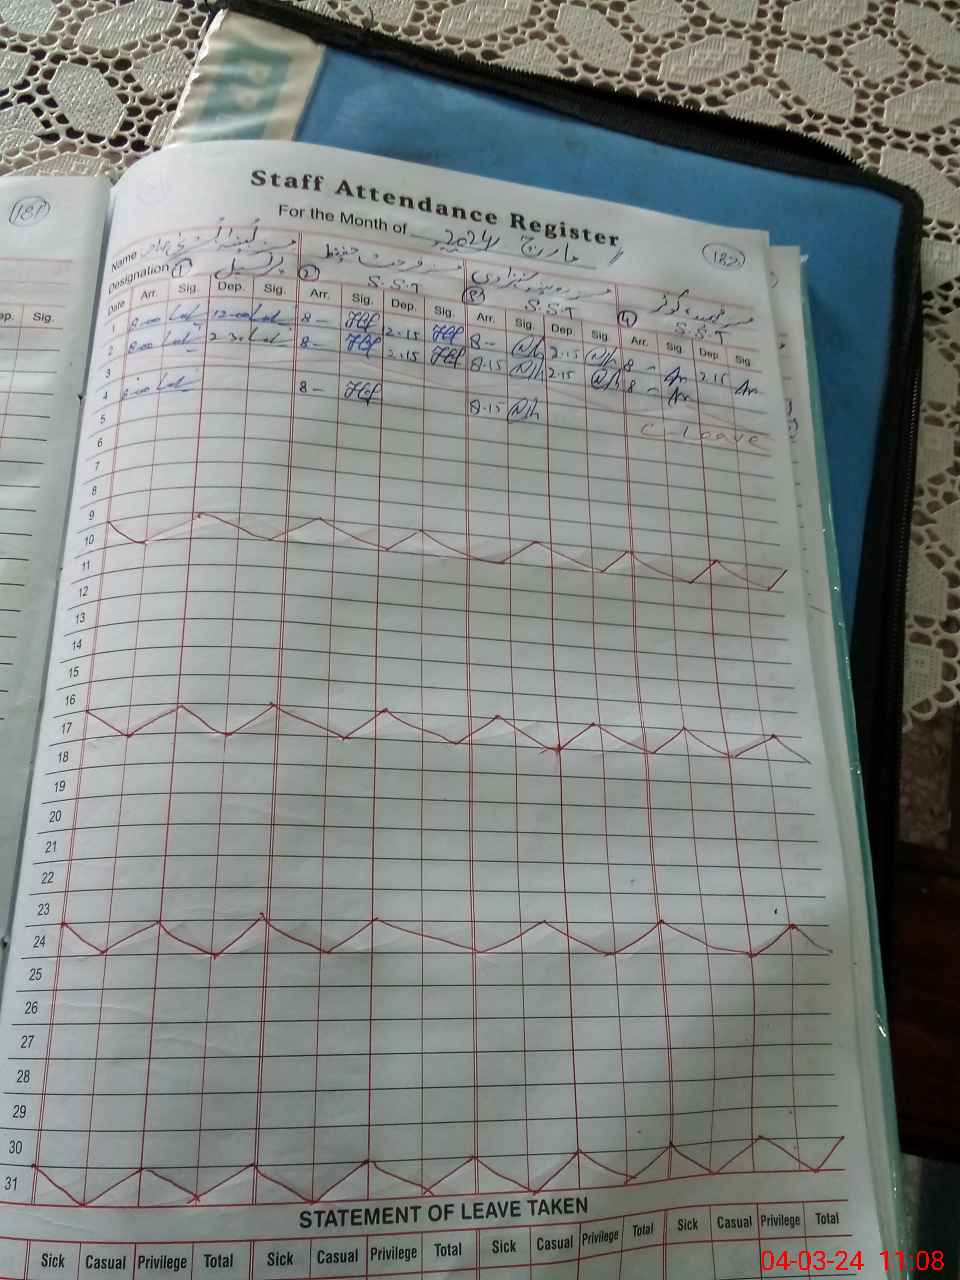 187
Staff Attendance Register
For the Month of مارچ 2024
182
Name
Designation ① پرنسپل ② S.S.T ③ S.S.T ④ S.S.T
ep. Sig.
Date Arr. Sig. Dep. Sig. Arr. Sig. Dep. Sig. Arr. Sig. Dep. Sig. Arr. Sig. Dep. Sig.
1 8=00 12=00 8- 12.15 8- 2.15 8- 2.15
2 8=00 2.30 8- 2.15 8.15 2.15 8-
3
4 8=00 8- 8.15 C-Leave
5
6
7
8
9
10
11
12
13
14
15
16
17
18
19
20
21
22
23
24
25
26
27
28
29
30
31
STATEMENT OF LEAVE TAKEN
Sick Casual Privilege Total Sick Casual Privilege Total Sick Casual Privilege Total Sick Casual Privilege Total
04-03-24 11:08